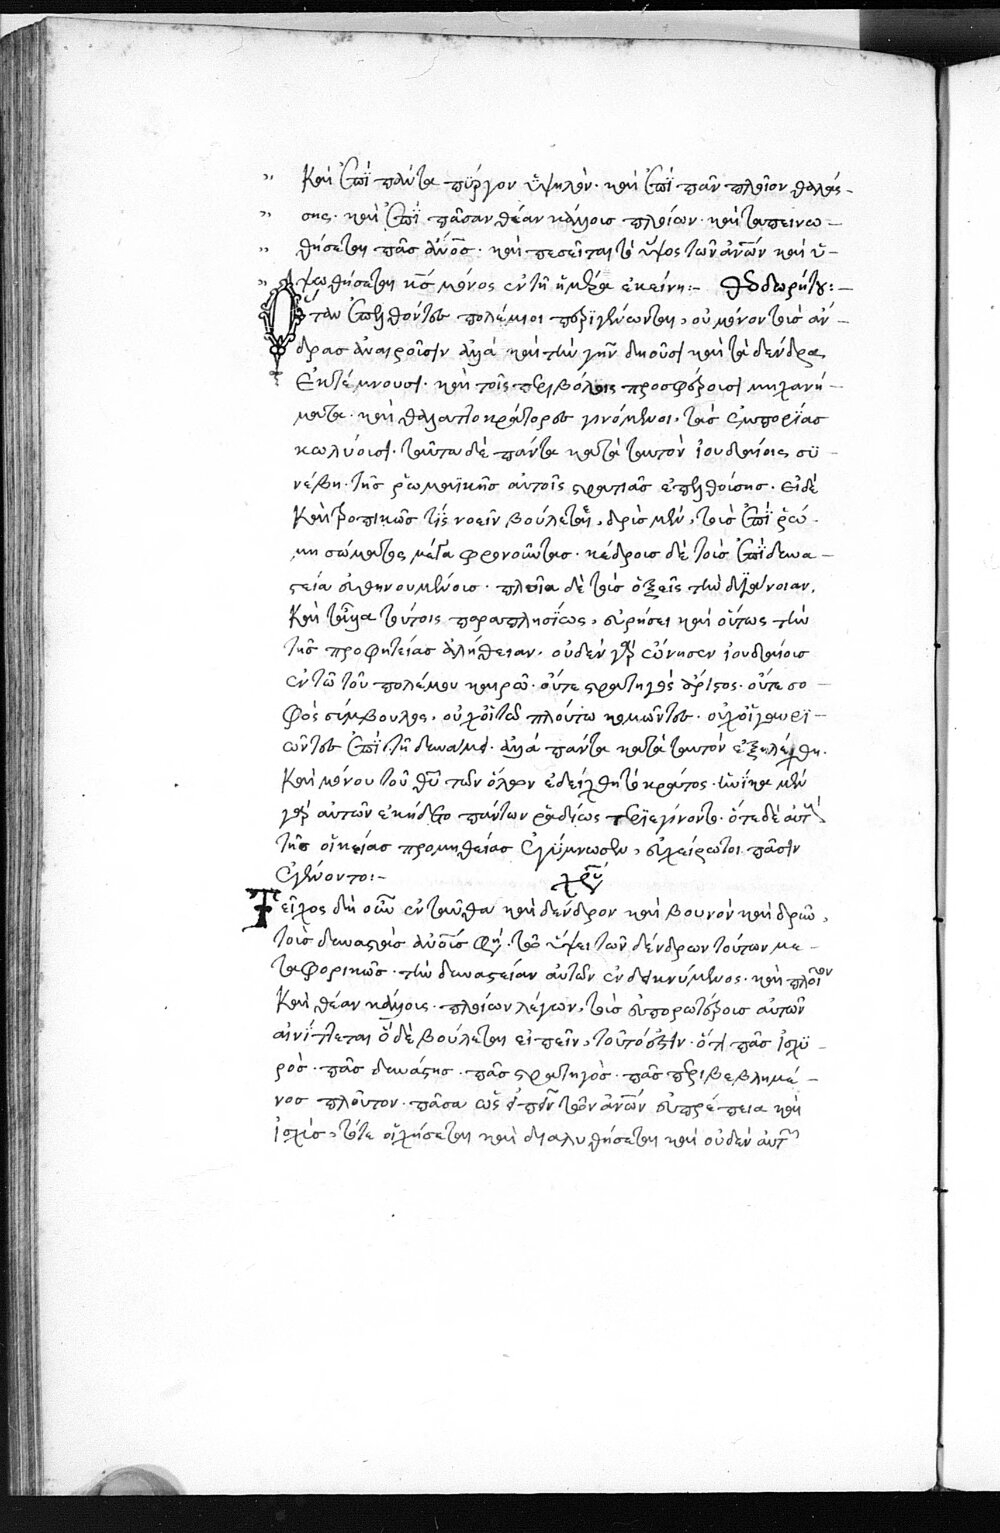 καὶ ἐπὶ πάντα πύργον ὑψηλὸν· καὶ ἐπὶ πᾶν πλοῖον θαλάσ-
σης· καὶ ἐπὶ πᾶσαν θέαν κάλλους πλοίων· καὶ ταπεινω-
θήσεται πᾶς ἄνος· καὶ πεσεῖται τὸ ὕψος τῶν ἀνων καὶ ὑ-
ψωθήσεται κς μόνος ἐν τῆ ἡμέρα ἐκείνη:- θεοδωρήτου:-
Ὅταν ἐπελθόντες πολέμιοι περιγένωνται, οὐ μόνον τοὺς ἄν-
δρας ἀναιροῦσιν ἀλλὰ καὶ τὴν γῆν δηοῦσι καὶ τὰ δένδρα
ἐκτέμνουσι· καὶ τοῖς περιβόλοις προσφέρουσι μηχανή-
ματα· καὶ θαλαττοκράτορες γινόμενοι, τὰς ἐμπορίας
κωλύουσι· ταῦτα δὲ πάντα κατὰ ταυτὸν ἰουδαίοις συ-
νέβη· τῆς ῥωμαϊκῆς αὐτοῖς στρατιᾶς ἐπελθούσης· εἰ δὲ
καὶ τροπικῶς τίς νοεῖν βούλεται, δρῦς μὲν, τοὺς ἐπὶ ῥώ-
μη σώματος μέγα φρονοῦντας· κέδρους δὲ τοὺς ἐπὶ δυνα-
στεία σεμνουμένους· πλοῖα δὲ τοὺς ὀξεῖς τὴν διάνοιαν,
καὶ τἄλλα τούτοις παραπλησίως, εὑρήσει καὶ οὕτως τὴν
τῆς προφητείας ἀλήθειαν· οὐδὲν γὰρ ὤνησεν ἰουδαίους
ἐν τῶ τοῦ πολέμου καιρῶ· οὔτε στρατηγὸς ἄριστος· οὔτε σο-
φὸς σύμβουλος, οὐχ οἱ τῶ πλούτω κομῶντες· οὐχ οἱ γαυρι-
ῶντες ἐπὶ τῆ δυνάμει· ἀλλὰ πάντα κατὰ ταυτὸν ἐξηλέγχθη·
καὶ μόνου τοῦ θυ τῶν ὅλων ἐδείχθη τὸ κράτος· ἡνίκα μὲν
γὰρ αὐτῶν ἐκήδετο πάντων ῥαδίως περιεγίνοντο· ὅτε δὲ αὐτ
τῆς οἰκείας προμηθείας ἐγύμνωσεν, εὐχείρωτοι πᾶσιν
ἐγένοντο:-
χρυ
Τεῖχος δὴ οὖν ἐνταῦθα καὶ δένδρον καὶ βουνὸν καὶ δρῦν,
τοὺς δυνατοὺς ἀνους φη· τῶ ὕψει τῶν δένδρων τούτων με-
ταφορικῶς· τὴν δυναστείαν αὐτῶν ἐνδεικνύμενος· καὶ πλοῖον
καὶ θέαν κάλλους· πλοίων λέγων, τοὺς εὐπορωτέρους αὐτῶν
αἰνίττεται ὃ δὲ βούλεται εἰπεῖν, τοῦτό ἐστιν· ὅτι πᾶς ἰσχυ-
ρὸς· πᾶς δυνάστης· πᾶς στρατηγὸς· πᾶς περιβεβλημέ-
νος πλοῦτον· πᾶσα ὡς εἰπεῖν τῶν ἀνων εὐπρέπεια καὶ
ἰσχὺς, τότε οἰχήσεται καὶ διαλυθήσεται καὶ οὐδὲν αὐτ